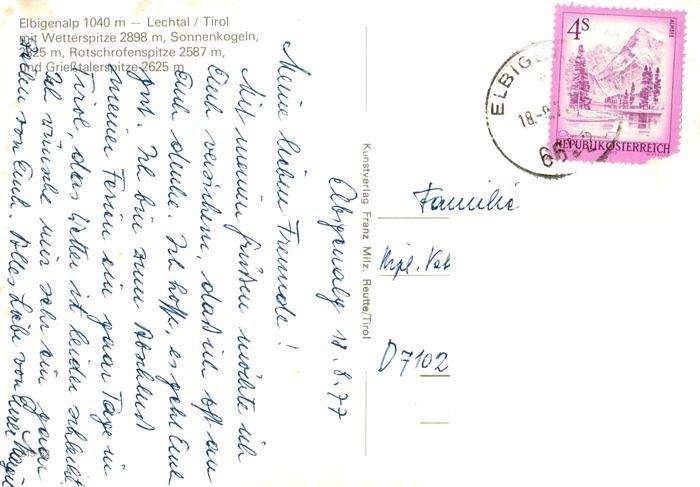 Elbigenalp 1040 m — Lechtal / Tirol
mit Wetterspitze 2898 m, Sonnenkogeln,
m, Rotschrofenspitze 2587 m,
und Grießtalerspitze 2625 m
Elbigenalp 18.8.77
Meine lieben Freunde!
Mit meinen Grüßen möchte ich
Euch versichern, daß ich oft an
Euch denke. Ich hoffe, es geht Euch
gut. Ich bin zum Abschluß
meiner Ferien ein paar Tage in
Tirol, das Wetter ist leider schlecht.
Ich wünsche mir sehr ein paar
Zeilen von Euch. Alles Liebe von Eurer
Kunstverlag Franz Milz, Reutte/Tirol
4S
ALMSEE
REPUBLIK ÖSTERREICH
ELBIG
18.-
66
Familie
Dipl.
D 7102